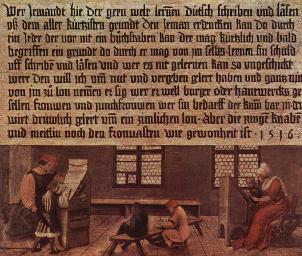 Wer jemandt hie der gern welt lernen dütsch schriben und läsen
uß dem aller kürtzisten grundt den jeman erdencken kan do durch
ein jeder der vor nit ein büchstaben kan der mag kürtzlich und bald
begriffen ein grundt do durch er mag von jm selbs lernen sin schuld
uff schribē und läsen und wer es nit gelernen kan so ungeschickt
wer den will ich um nüt und vergeben glert haben und gantz nüt
von jm zů lon nemen er sig wer er well burger oder hantwercks ge
sellen frouwen und junckfrouwen wer sin bedarff der kum har jn der
wirt drüwlich gelert um ein zimlichen lon. Aber die junge knabē
und meitlin noch den fronvasten wie gewonheit ist. 1516.